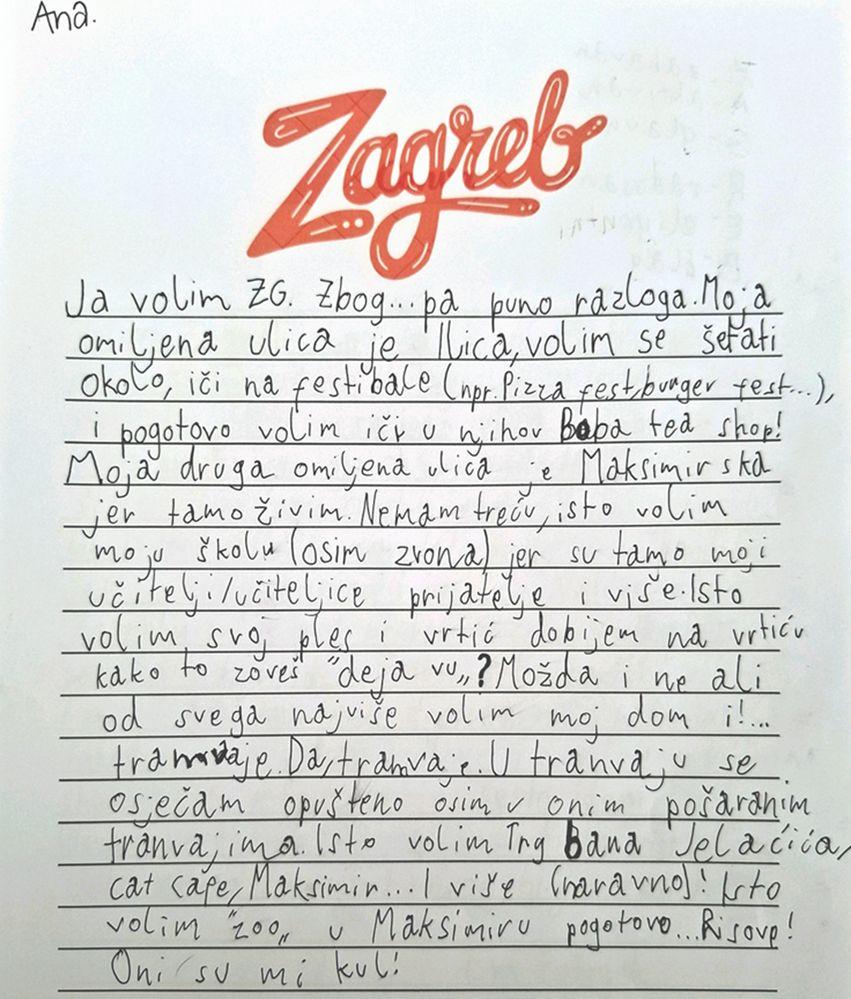 Ana.
Zagreb
Ja volim ZG. Zbog... pa puno razloga. Moja
omiljena ulica je Ilica, volim se šetati
okolo, iči na festibale (npr. Pizza fest, burger fest...),
i pogotovo volim iči u njihov Boba tea shop!
Moja druga omiljena ulica je Maksimirska
jer tamo živim. Nemam treću, isto volim
moju školu (osim zvona) jer su tamo moji
učitelji/učiteljice prijatelje i više. Isto
volim svoj ples i vrtić dobijem na vrtiću
kako to zoveš "deja vu„? Možda i ne ali
od svega najviše volim moj dom i!...
tramvaje. Da, tramvaje. U tranvaju se
osječam opušteno osim u onim pošaranim
tranvajima. Isto volim Trg bana Jelačića,
cat cafe, Maksimir... I više (naravno)! Isto
volim "zoo„ u Maksimiru pogotovo... Risove!
Oni su mi kul!